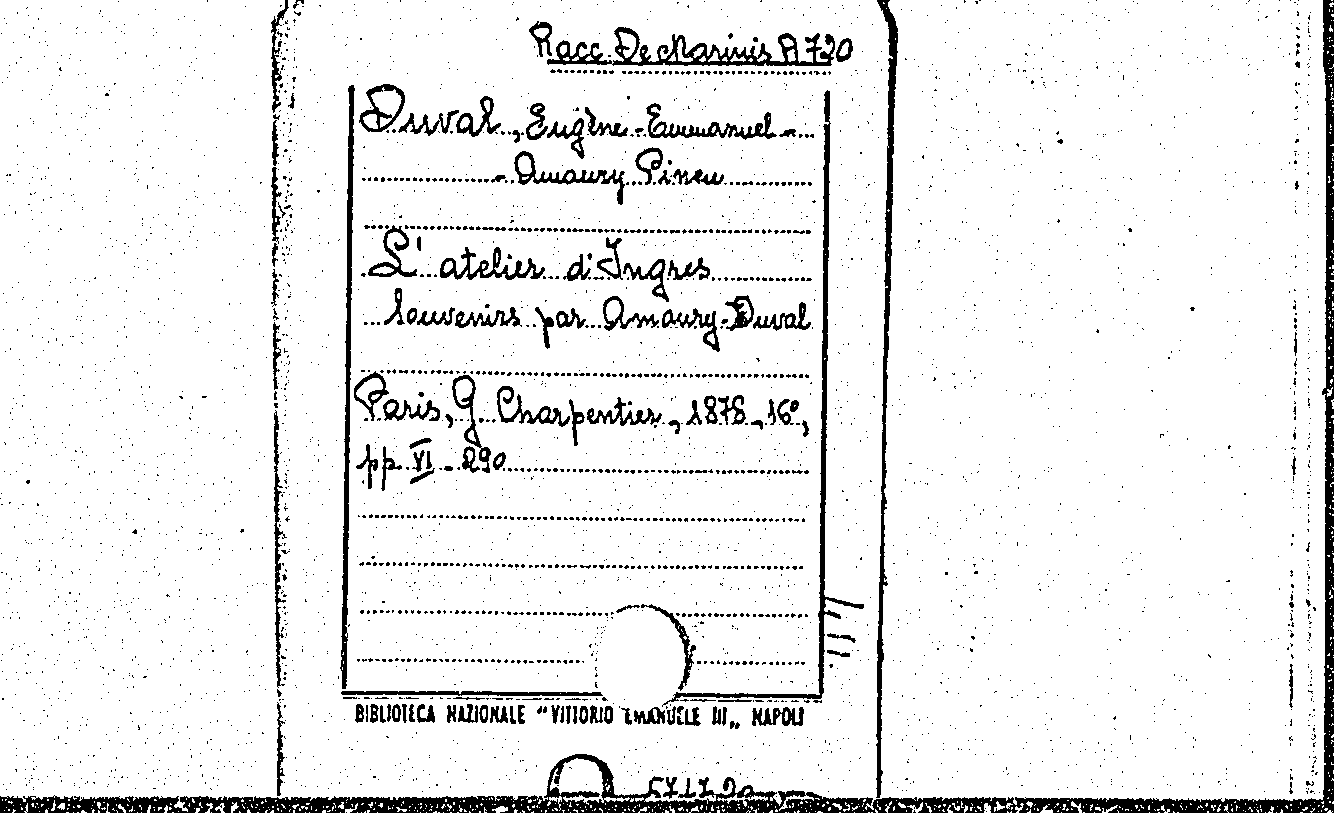 Racc. De Marinis A 720
Duval, Eugène-Emmanuel-
-Amaury Pineu
L'atelier d'Ingres
Souvenirs par Amaury-Duval
Paris, G. Charpentier, 1878, 16°,
pp. VI - 290
BIBLIOTECA NAZIONALE "VITTORIO EMANUELE III„ NAPOLI